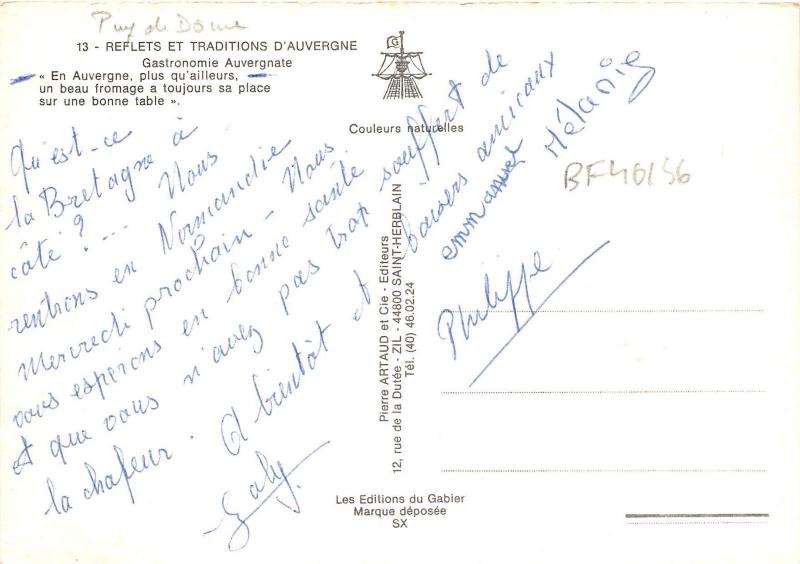 Puy de Dôme
13 - REFLETS ET TRADITIONS D'AUVERGNE
Gastronomie Auvergnate
« En Auvergne, plus qu'ailleurs,
un beau fromage a toujours sa place
sur une bonne table ».
G
Couleurs naturelles
Qu'est-ce
la Bretagne à
côté ?... Nous
rentrons en Normandie
Mercredi prochain - Nous
vous espérons en bonne santé
et que vous n'avez pas trop souffert de
la chaleur. A bientôt et baisers amicaux
Gaby
emmanuel Mélanie
Philippe
BF40156
Pierre ARTAUD et Cie - Editeurs
12, rue de la Dutée - ZIL - 44800 SAINT-HERBLAIN
Tél. (40) 46.02.24
Les Editions du Gabier
Marque déposée
SX